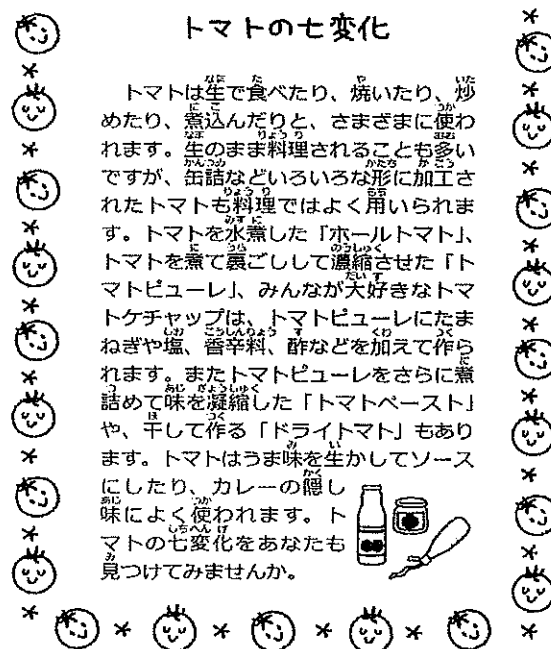 トマトの七変化
トマトは生で食べたり、焼いたり、炒
めたり、煮込んだりと、さまざまに使わ
れます。生のまま料理されることも多い
ですが、缶詰などいろいろな形に加工さ
れたトマトも料理ではよく用いられま
す。トマトを水煮した「ホールトマト」、
トマトを煮て裏ごしして濃縮させた「ト
マトピューレ」、みんなが大好きなトマ
トケチャップは、トマトピューレにたま
ねぎや塩、香辛料、酢などを加えて作ら
れます。またトマトピューレをさらに煮
詰めて味を凝縮した「トマトペースト」
や、干して作る「ドライトマト」もあり
ます。トマトはうま味を生かしてソース
にしたり、カレーの隠し
味によく使われます。ト
マトの七変化をあなたも
見つけてみませんか。